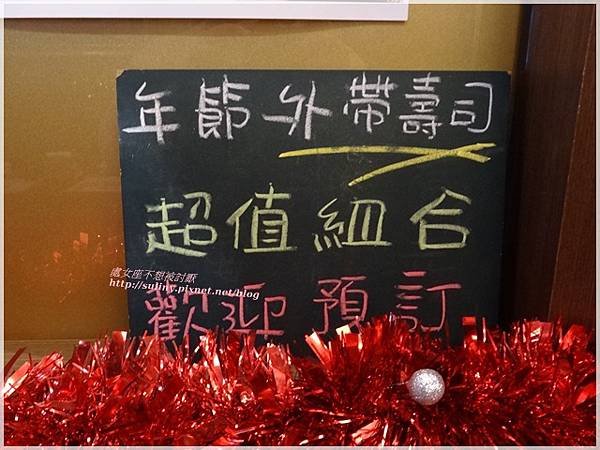 年節外帶壽司
超值組合
處女座不想被討厭
http://suliny.pixnet.net/blog
歡迎預訂